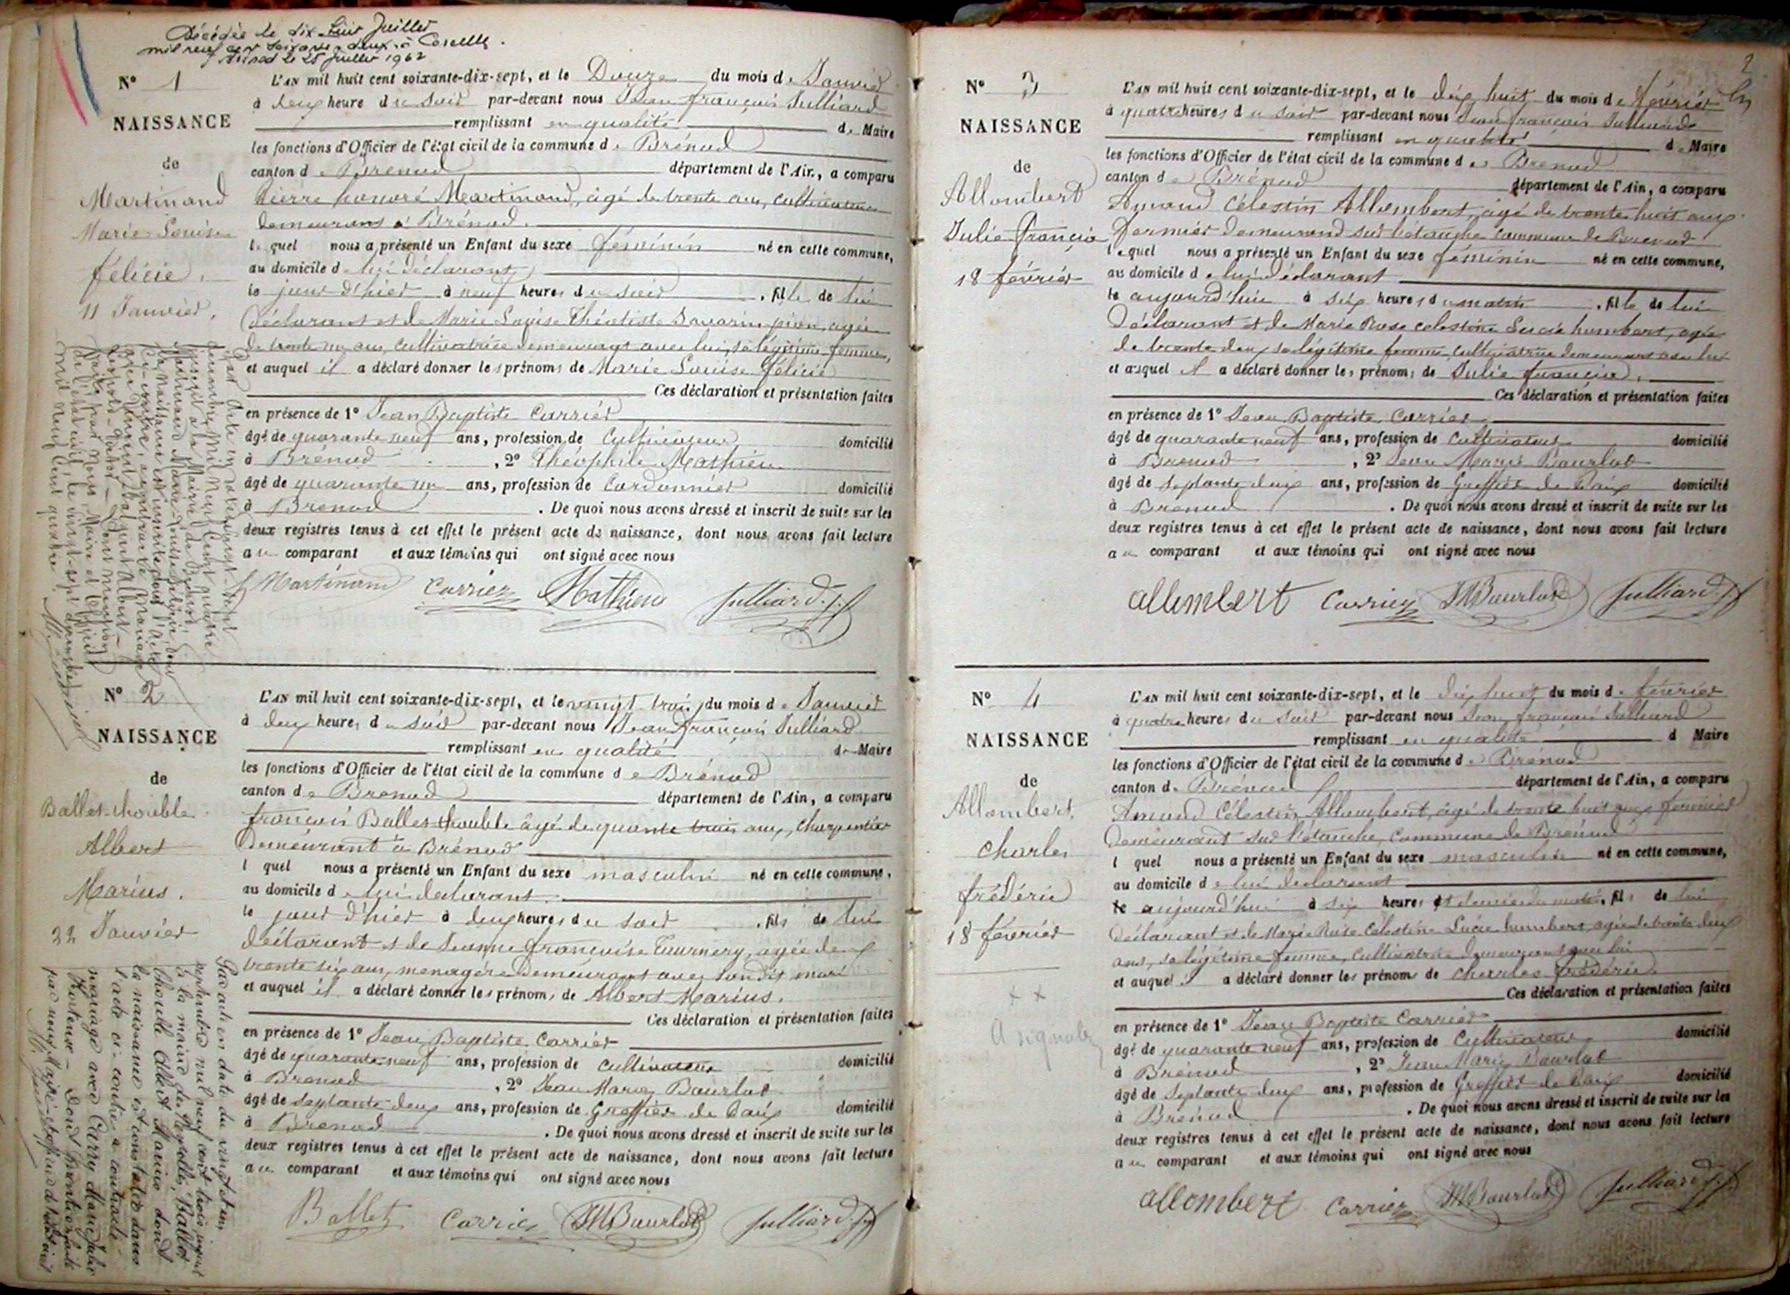 Décédée le dix huit Juillet
mil neuf cent soixante deux à
le 25 Juillet 1962
N° 1
NAISSANCE
de
Martinand
Marie Louise
félicie.
11 Janvier.
L'AN mil huit cent soixante-dix-sept, et le Douze du mois de Janvier
à deux heure du soir par-devant nous Jean françois Julliard
remplissant en qualité de Maire
les fonctions d'Officier de l'état civil de la commune de Brénod
canton de Brénod département de l'Ain, a comparu
Pierre honoré Martinand, âgé de trente ans, cultivateur
demeurant à Brénod.
lequel nous a présenté un Enfant du sexe féminin né en cette commune,
au domicile de lui déclarant
le jour d'hier à neuf heures du soir, fille de lui
déclarant et de Marie Louise Théotiste Savarin, âgée
de trente un ans, cultivatrice demeurant avec lui, sa légitime femme,
et auquel il a déclaré donner les prénoms de Marie Louise félicie
Ces déclaration et présentation faites
en présence de 1° Jean Baptiste Carrier
âgé de quarante neuf ans, profession de Cultivateur domicilié
à Brénod, 2° Théophile Mathieu
âgé de quarante un ans, profession de Cordonnier domicilié
à Brénod. De quoi nous avons dressé et inscrit de suite sur les
deux registres tenus à cet effet le présent acte de naissance, dont nous avons fait lecture
au comparant et aux témoins qui ont signé avec nous
Martinand Carrier Mathieu Julliard J. f.
N° 2
NAISSANCE
de
Ballet-thouble
Albert
Marius.
22 Janvier
L'AN mil huit cent soixante-dix-sept, et le vingt trois du mois de Janvier
à deux heures du soir par-devant nous Jean françois Julliard
remplissant en qualité de Maire
les fonctions d'Officier de l'état civil de la commune de Brénod
canton de Brénod département de l'Ain, a comparu
françois Ballet thouble âgé de quarante trois ans, charpentier
Demeurant à Brénod
lequel nous a présenté un Enfant du sexe masculin né en cette commune,
au domicile de lui declarant
le jour d'hier à deux heures du soir, fils de lui
déclarant et de Jeanne françoise Tournery, agée de
trente six ans, menagère Demeurant avec son dit mari
et auquel il a déclaré donner les prénoms de Albert Marius.
Ces déclaration et présentation faites
en présence de 1° Jean Baptiste Carrier
âgé de quarante neuf ans, profession de cultivateur domicilié
à Brenod, 2° Jean Marie Bourlot
âgé de septante deux ans, profession de Greffier de Paix domicilié
à Brenod. De quoi nous avons dressé et inscrit de suite sur les
deux registres tenus à cet effet le présent acte de naissance, dont nous avons fait lecture
au comparant et aux témoins qui ont signé avec nous
Ballet Carrier JMBourlot Julliard J. f.
2
N° 3
NAISSANCE
de
Allombert
Julie françia
18 février
L'AN mil huit cent soixante-dix-sept, et le dix huit du mois de février
à quatre heures du soir par-devant nous Jean françois Julliard
remplissant en qualité de Maire
les fonctions d'Officier de l'état civil de la commune de Brenod
canton de Brénod département de l'Ain, a comparu
Amand Célestin Allombert, âgé de trente huit ans
fermier demeurant sur l'étanche commune de Brenod
lequel nous a présenté un Enfant du sexe féminin né en cette commune,
au domicile de lui déclarant
le aujourd'hui à six heures du matin, fille de lui
Déclarant et de Marie Rose celestine Lucie humbert, agée
de trente deux sa légitime femme, cultivatrice demeurant avec lui
et auquel il a déclaré donner les prénoms de Julie francia.
Ces déclaration et présentation faites
en présence de 1° Jean Baptiste Carrier
âgé de quarante neuf ans, profession de cultivateur domicilié
à Brenod, 2° Jean Marie Bourlot
âgé de septante deux ans, profession de Greffier de Paix domicilié
à Brenod. De quoi nous avons dressé et inscrit de suite sur les
deux registres tenus à cet effet le présent acte de naissance, dont nous avons fait lecture
au comparant et aux témoins qui ont signé avec nous
allembert Carrier JMBourlot Julliard J. f.
N° 4
NAISSANCE
de
Allombert.
charles
frédéric
18 février
L'AN mil huit cent soixante-dix-sept, et le dix huit du mois de février
à quatre heures du soir par-devant nous Jean françois Julliard
remplissant en qualité d Maire
les fonctions d'Officier de l'état civil de la commune de Brénod
canton de Brénod département de l'Ain, a comparu
Amand Célestin Allombert, âgé de trente huit ans fermier
Demeurant sur l'étanche, commune de Brénod
lequel nous a présenté un Enfant du sexe masculin né en cette commune,
au domicile de lui declarant
le aujourd'hui à six heures et demie du matin, fils de lui
Déclarant et de Marie Rose Célestine Lucie humbert agée de trente deux
ans, sa légitime femme, Cultivatrice Demeurant avec lui
et auquel il a déclaré donner les prénoms de charles frédéric
Ces déclaration et présentation faites
en présence de 1° Jean Baptiste Carrier
âgé de quarante neuf ans, profession de Cultivateur domicilié
à Brénod, 2° Jean Marie Bourlot
âgé de septante deux ans, profession de Greffier de Paix domicilié
à Brénod. De quoi nous avons dressé et inscrit de suite sur les
deux registres tenus à cet effet le présent acte de naissance, dont nous avons fait lecture
au comparant et aux témoins qui ont signé avec nous
allombert Carrier JMBourlot Julliard J. f.